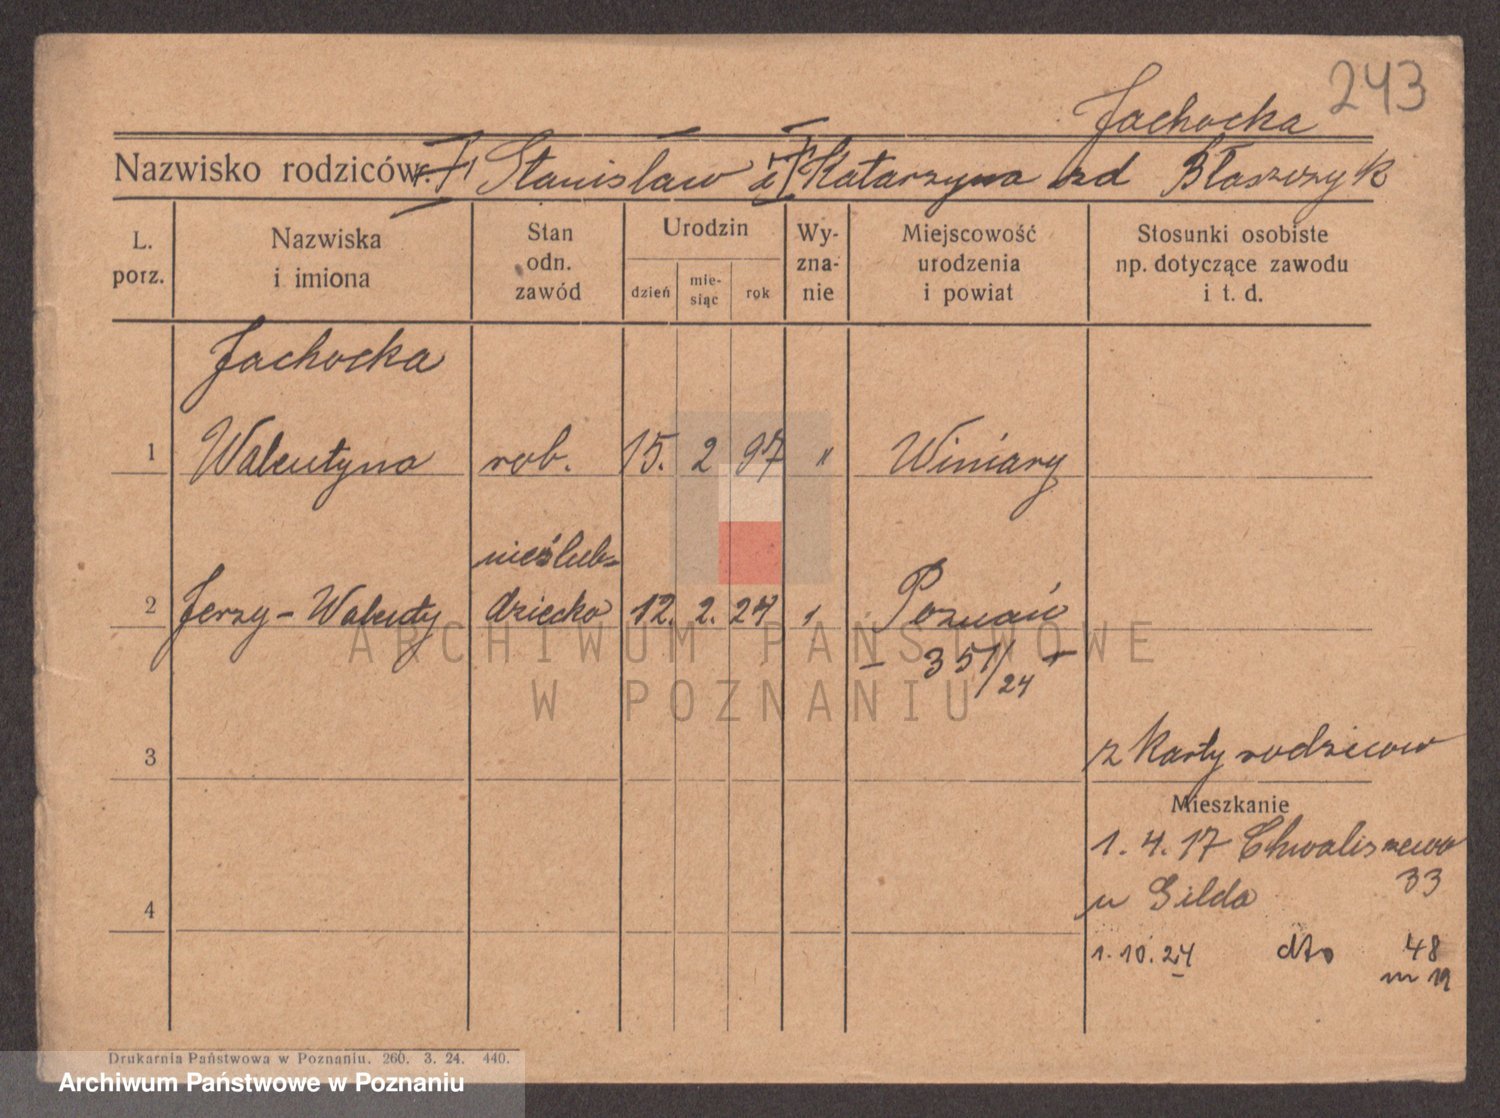 243
Jachocka
Nazwisko rodziców: Stanisław i Katarzyna zd Błaszczyk
L. porz.
Nazwiska i imiona
Stan odn. zawód
Urodzin
dzień
mie-siąc
rok
Wy-zna-nie
Miejscowość urodzenia i powiat
Stosunki osobiste np. dotyczące zawodu i t. d.
Jachocka
1 Walentyna rob. 15. 2 97 " Winiary
nieślub-
2 Jerzy-Walenty dziecko 12. 2. 24 Poznań
351/24
3
z karty rodziców
Mieszkanie
1. 4. 17 Chwaliszewo
33
u Gilda
4
1. 10. 24 dto 48
m 19
ARCHIWUM PAŃSTWOWE
W POZNANIU
Drukarnia Państwowa w Poznaniu. 260. 3. 24. 440.
Archiwum Państwowe w Poznaniu